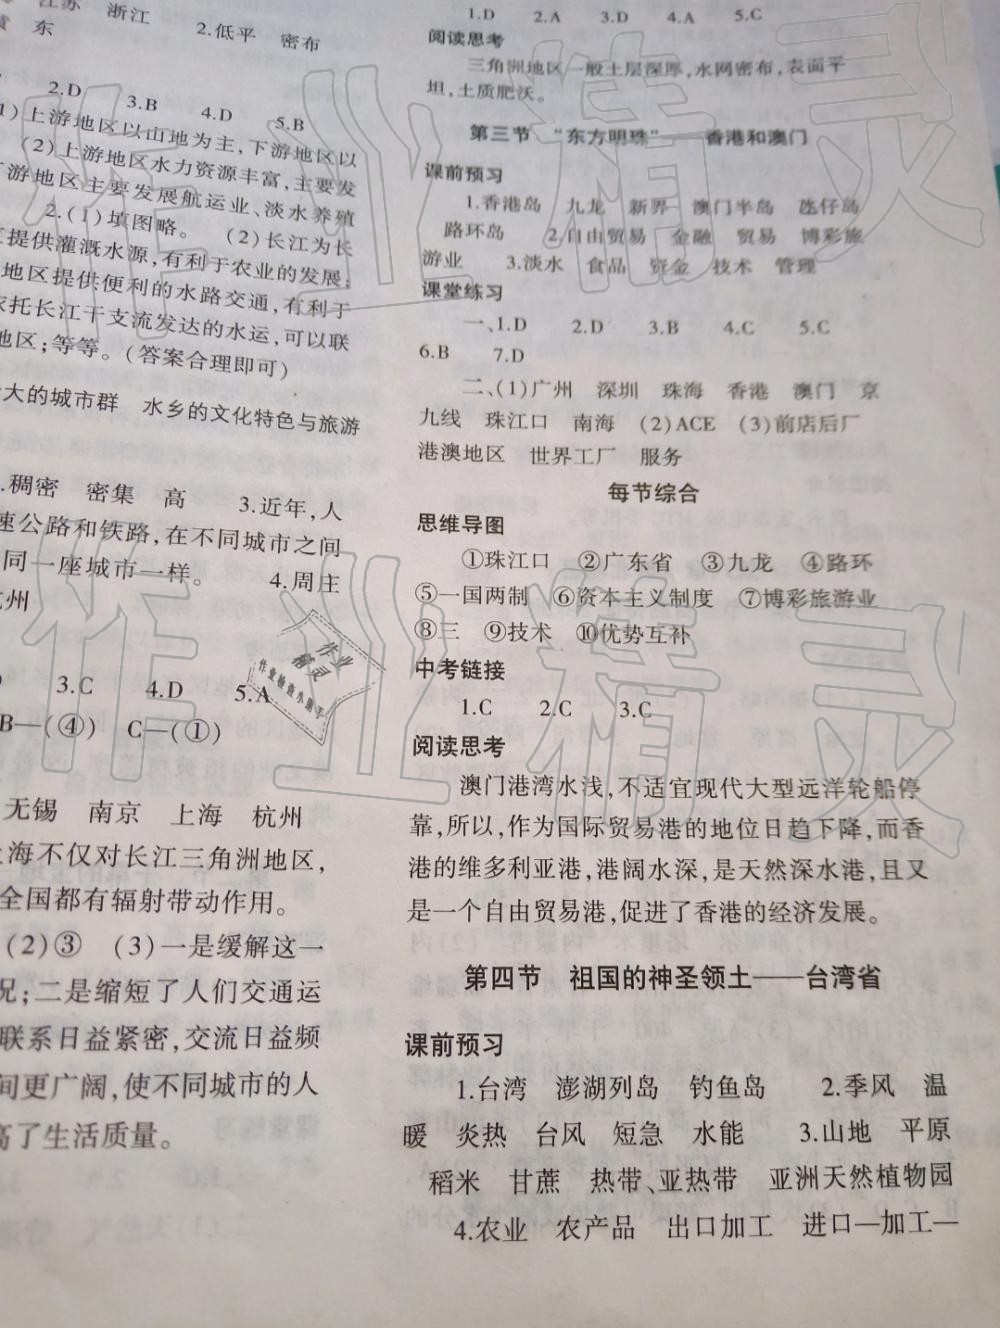 江苏 浙江 2.低平 密布
东
2.D 3.B 4.D 5.B
1)上游地区以山地为主,下游地区以
(2)上游地区水力资源丰富,主要发
游地区主要发展航运业、淡水养殖
2.(1)填图略。 (2)长江为长
提供灌溉水源,有利于农业的发展;
地区提供便利的水路交通,有利于
依托长江干支流发达的水运,可以联
地区;等等。(答案合理即可)
大的城市群 水乡的文化特色与旅游
.稠密 密集 高 3.近年,人
速公路和铁路,在不同城市之间
同一座城市一样。 4.周庄
杭州
3.C 4.D 5.A
B—(④) C—(①)
无锡 南京 上海 杭州
上海不仅对长江三角洲地区,
全国都有辐射带动作用。
(2)③ (3)一是缓解这一
况;二是缩短了人们交通运
联系日益紧密,交流日益频
间更广阔,使不同城市的人
高了生活质量。
1.D 2.A 3.D 4.A 5.C
阅读思考
三角洲地区一般土层深厚,水网密布,表面平
坦,土质肥沃。
第三节 “东方明珠”——香港和澳门
课前预习
1.香港岛 九龙 新界 澳门半岛 氹仔岛
路环岛 2.自由贸易 金融 贸易 博彩旅
游业 3.淡水 食品 资金 技术 管理
课堂练习
一、1.D 2.D 3.B 4.C 5.C
6.B 7.D
二、(1)广州 深圳 珠海 香港 澳门 京
九线 珠江口 南海 (2)ACE (3)前店后厂
港澳地区 世界工厂 服务
每节综合
思维导图
①珠江口 ②广东省 ③九龙 ④路环
⑤一国两制 ⑥资本主义制度 ⑦博彩旅游业
⑧三 ⑨技术 ⑩优势互补
中考链接
1.C 2.C 3.C
阅读思考
澳门港湾水浅,不适宜现代大型远洋轮船停
靠,所以,作为国际贸易港的地位日趋下降,而香
港的维多利亚港,港阔水深,是天然深水港,且又
是一个自由贸易港,促进了香港的经济发展。
第四节 祖国的神圣领土——台湾省
课前预习
1.台湾 澎湖列岛 钓鱼岛 2.季风 温
暖 炎热 台风 短急 水能 3.山地 平原
稻米 甘蔗 热带、亚热带 亚洲天然植物园
4.农业 农产品 出口加工 进口—加工—
作业精灵
作业精灵
作业
精灵
作业检查小助手